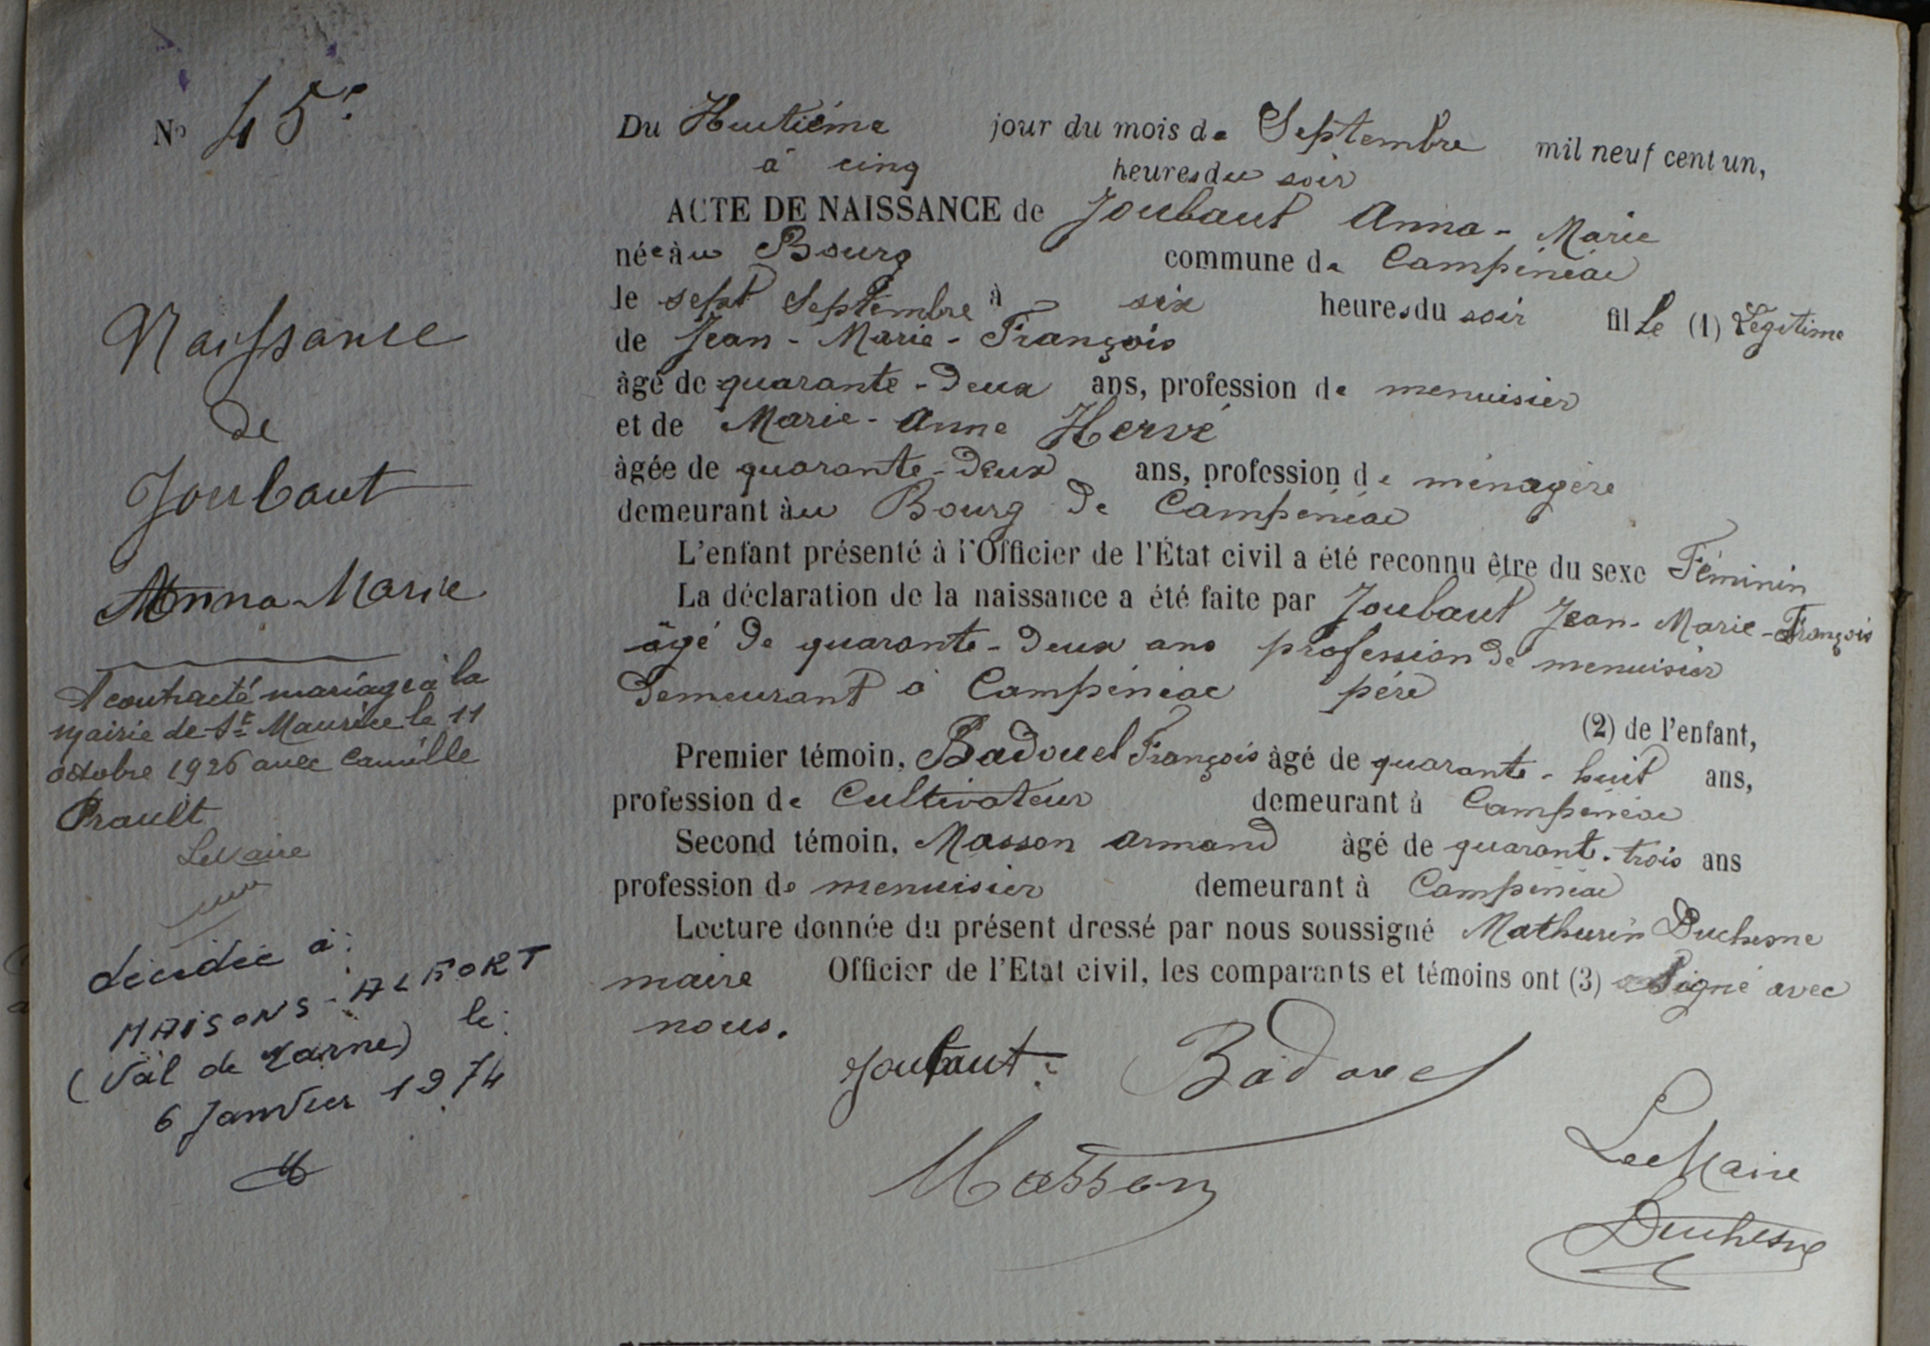 No 45.
Naissance
de
Joubaut
Anna-Marie
A contracté mariage à la
mairie de St Maurice le 11
octobre 1926 avec Camille
Prault
Le Maire
décédée à :
MAISONS-ALFORT
(Val de Marne) le :
6 Janvier 1974
Du Huitième jour du mois de Septembre mil neuf cent un,
à cinq heures du soir
ACTE DE NAISSANCE de Joubaut Anna-Marie
née au Bourg commune de Campénéac
le sept Septembre à six heures du soir fille (1) Légitime
de Jean-Marie-François
âgé de quarante-deux ans, profession de menuisier
et de Marie-Anne Hervé
âgée de quarante-deux ans, profession de ménagère
demeurant àu Bourg de Campénéac
L'enfant présenté à l'Officier de l'État civil a été reconnu être du sexe Féminin
La déclaration de la naissance a été faite par Joubaut Jean-Marie-François
âgé de quarante-deux ans profession de menuisier
demeurant à Campénéac père
(2) de l'enfant,
Premier témoin, Badouel François âgé de quarante-huit ans,
profession de Cultivateur demeurant à Campénéac
Second témoin, Masson Armand âgé de quarante-trois ans
profession de menuisier demeurant à Campénéac
Lecture donnée du présent dressé par nous soussigné Mathurin Duchesne
maire Officier de l'Etat civil, les comparants et témoins ont (3) Signé avec
nous.
Joubaut Badouel
Masson
Le Maire
Duchesne